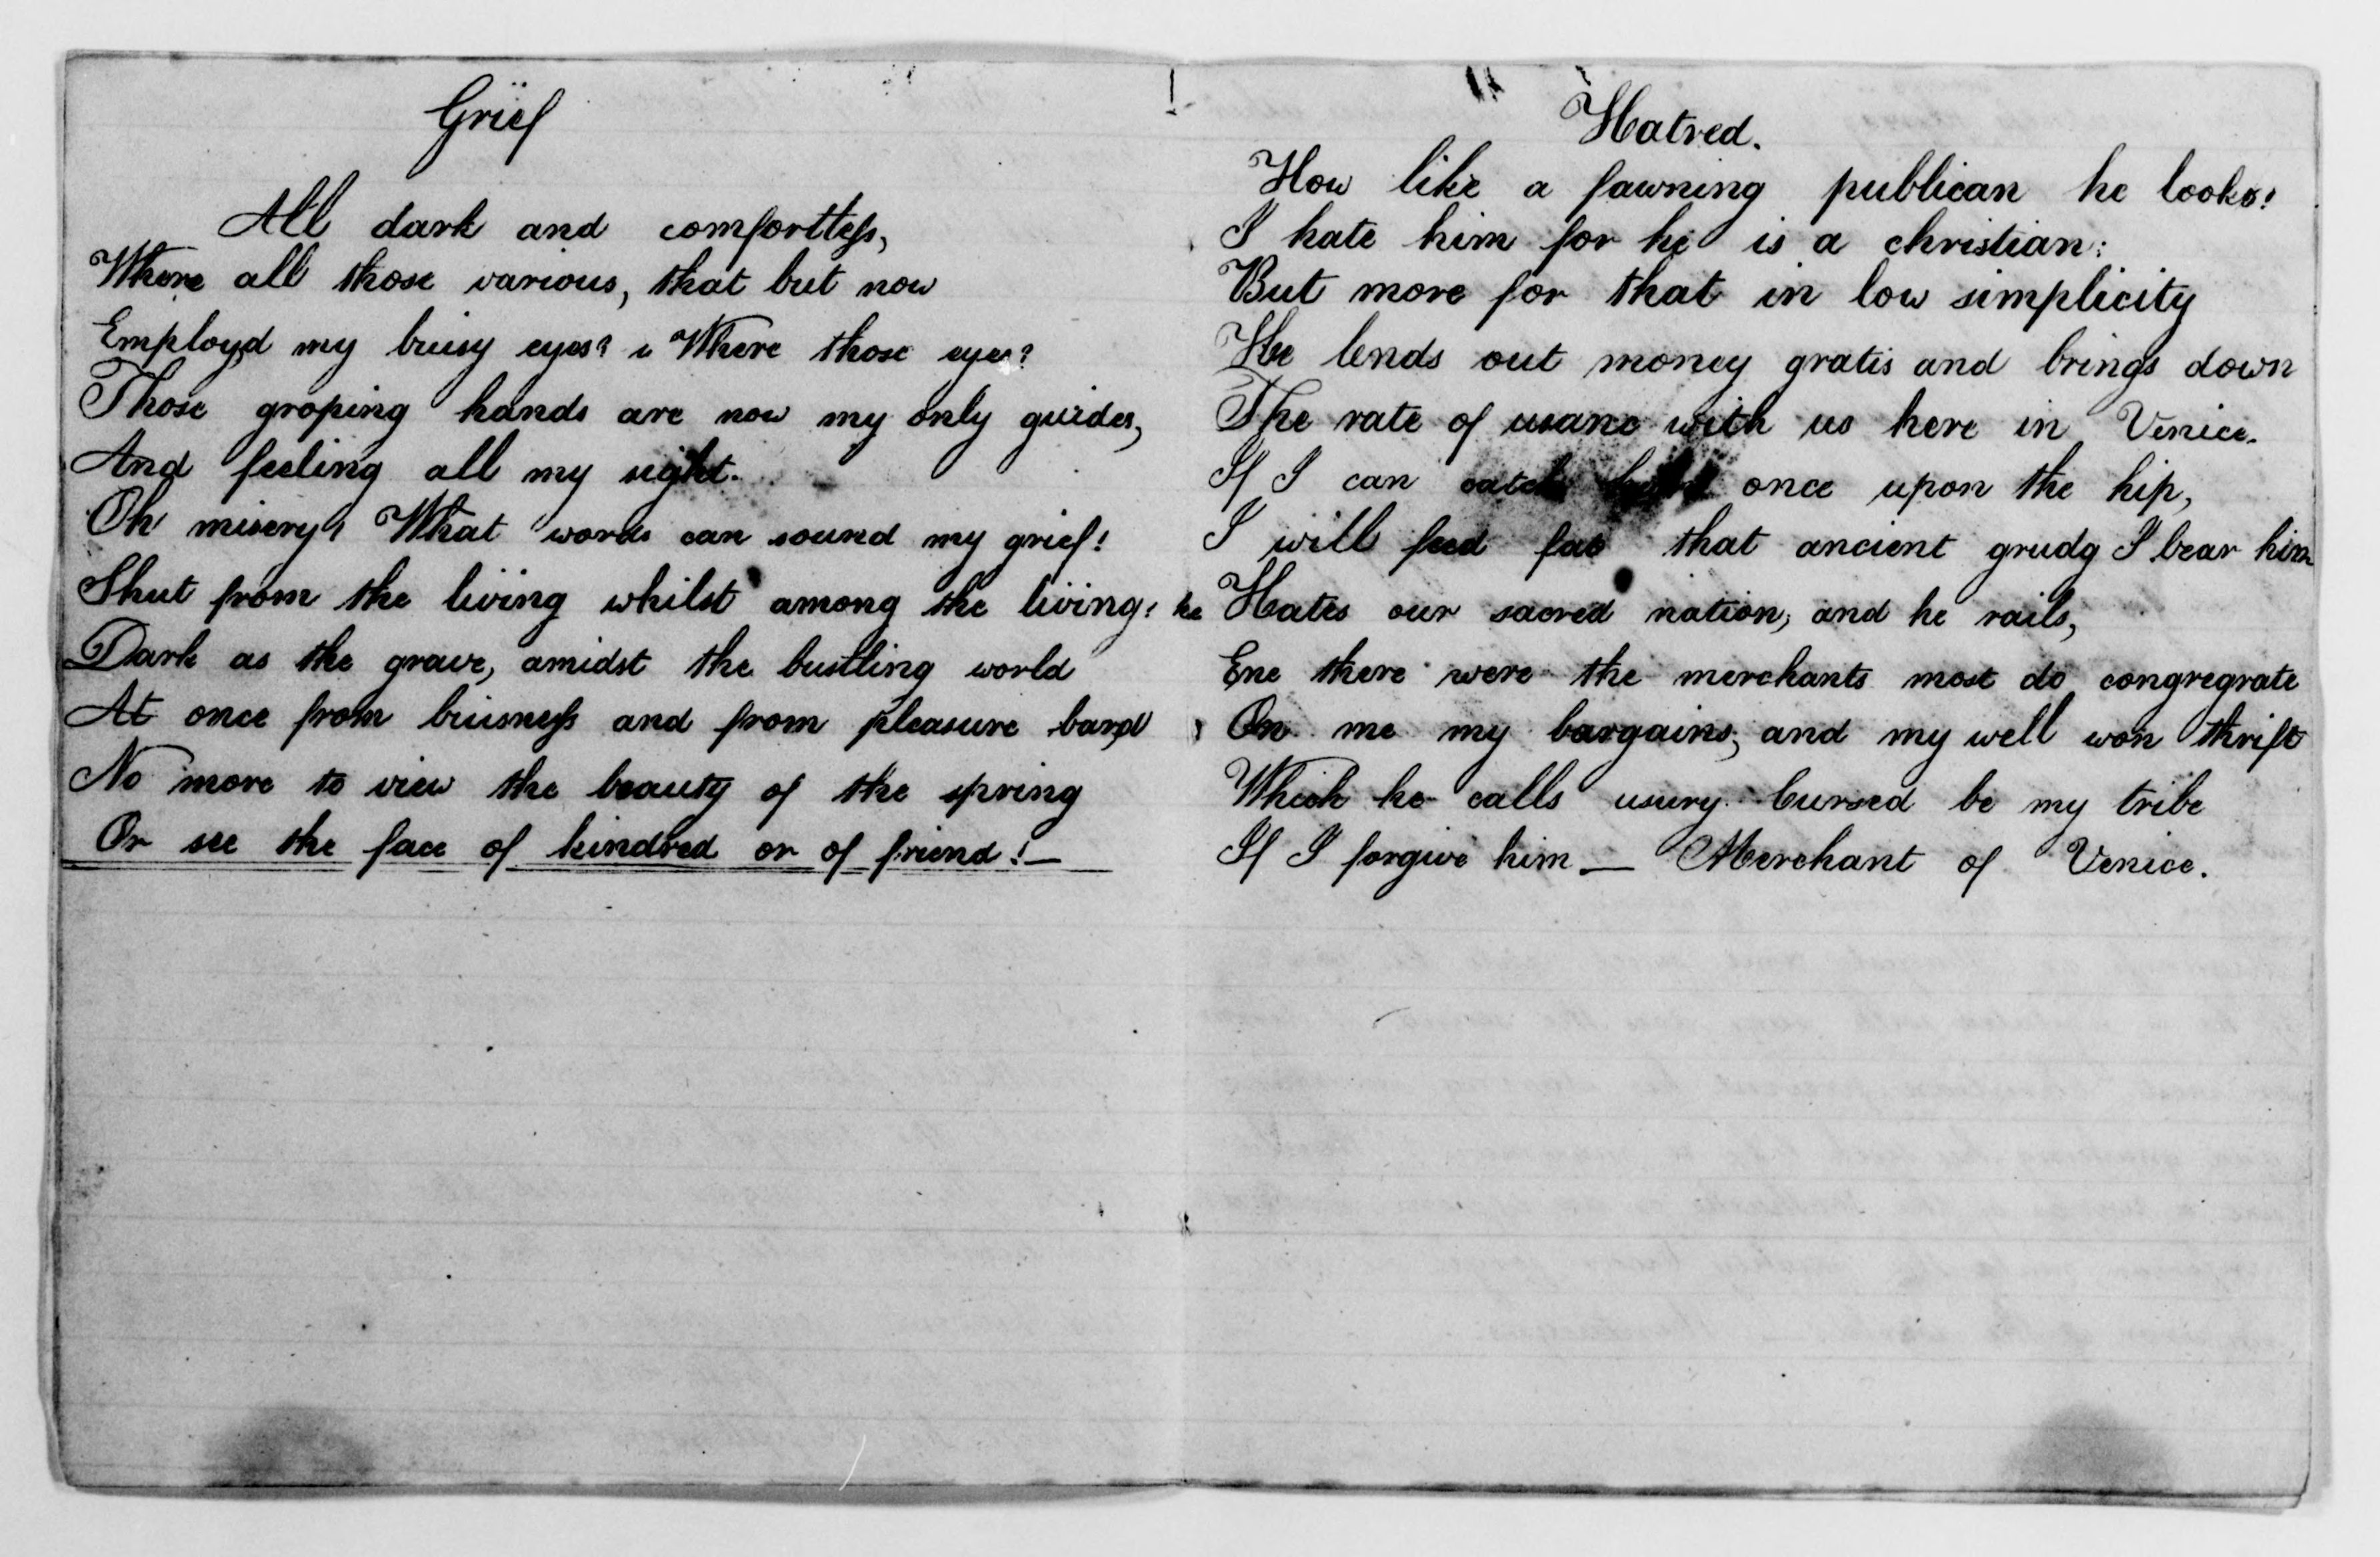 Grief
All dark and comfortless,
Where all those various, that but now
Employd my buisy eyes? Where those eyes?
Those groping hands are now my only guides,
And feeling all my sight.
Oh misery! What words can sound my grief!
Shut from the living whilst among the living;
Dark as the grave, amidst the bustling world
At once from buisness and from pleasure bard
No more to view the beauty of the spring
Or see the face of kindred or of friend! —
Hatred.
How like a fawning publican he looks!
I hate him for he is a christian:
But more for that in low simplicity
He lends out money gratis and brings down
The rate of usanc with us here in Venice.
If I can catch once upon the hip,
I will feed fat that ancient grudg I bear him
he Hates our sacred nation; and he rails,
Ene there were the merchants most do congregrate
On me my bargains, and my well won thrift
Which he calls usury. Cursed be my tribe
If I forgive him — Merchant of Venice.